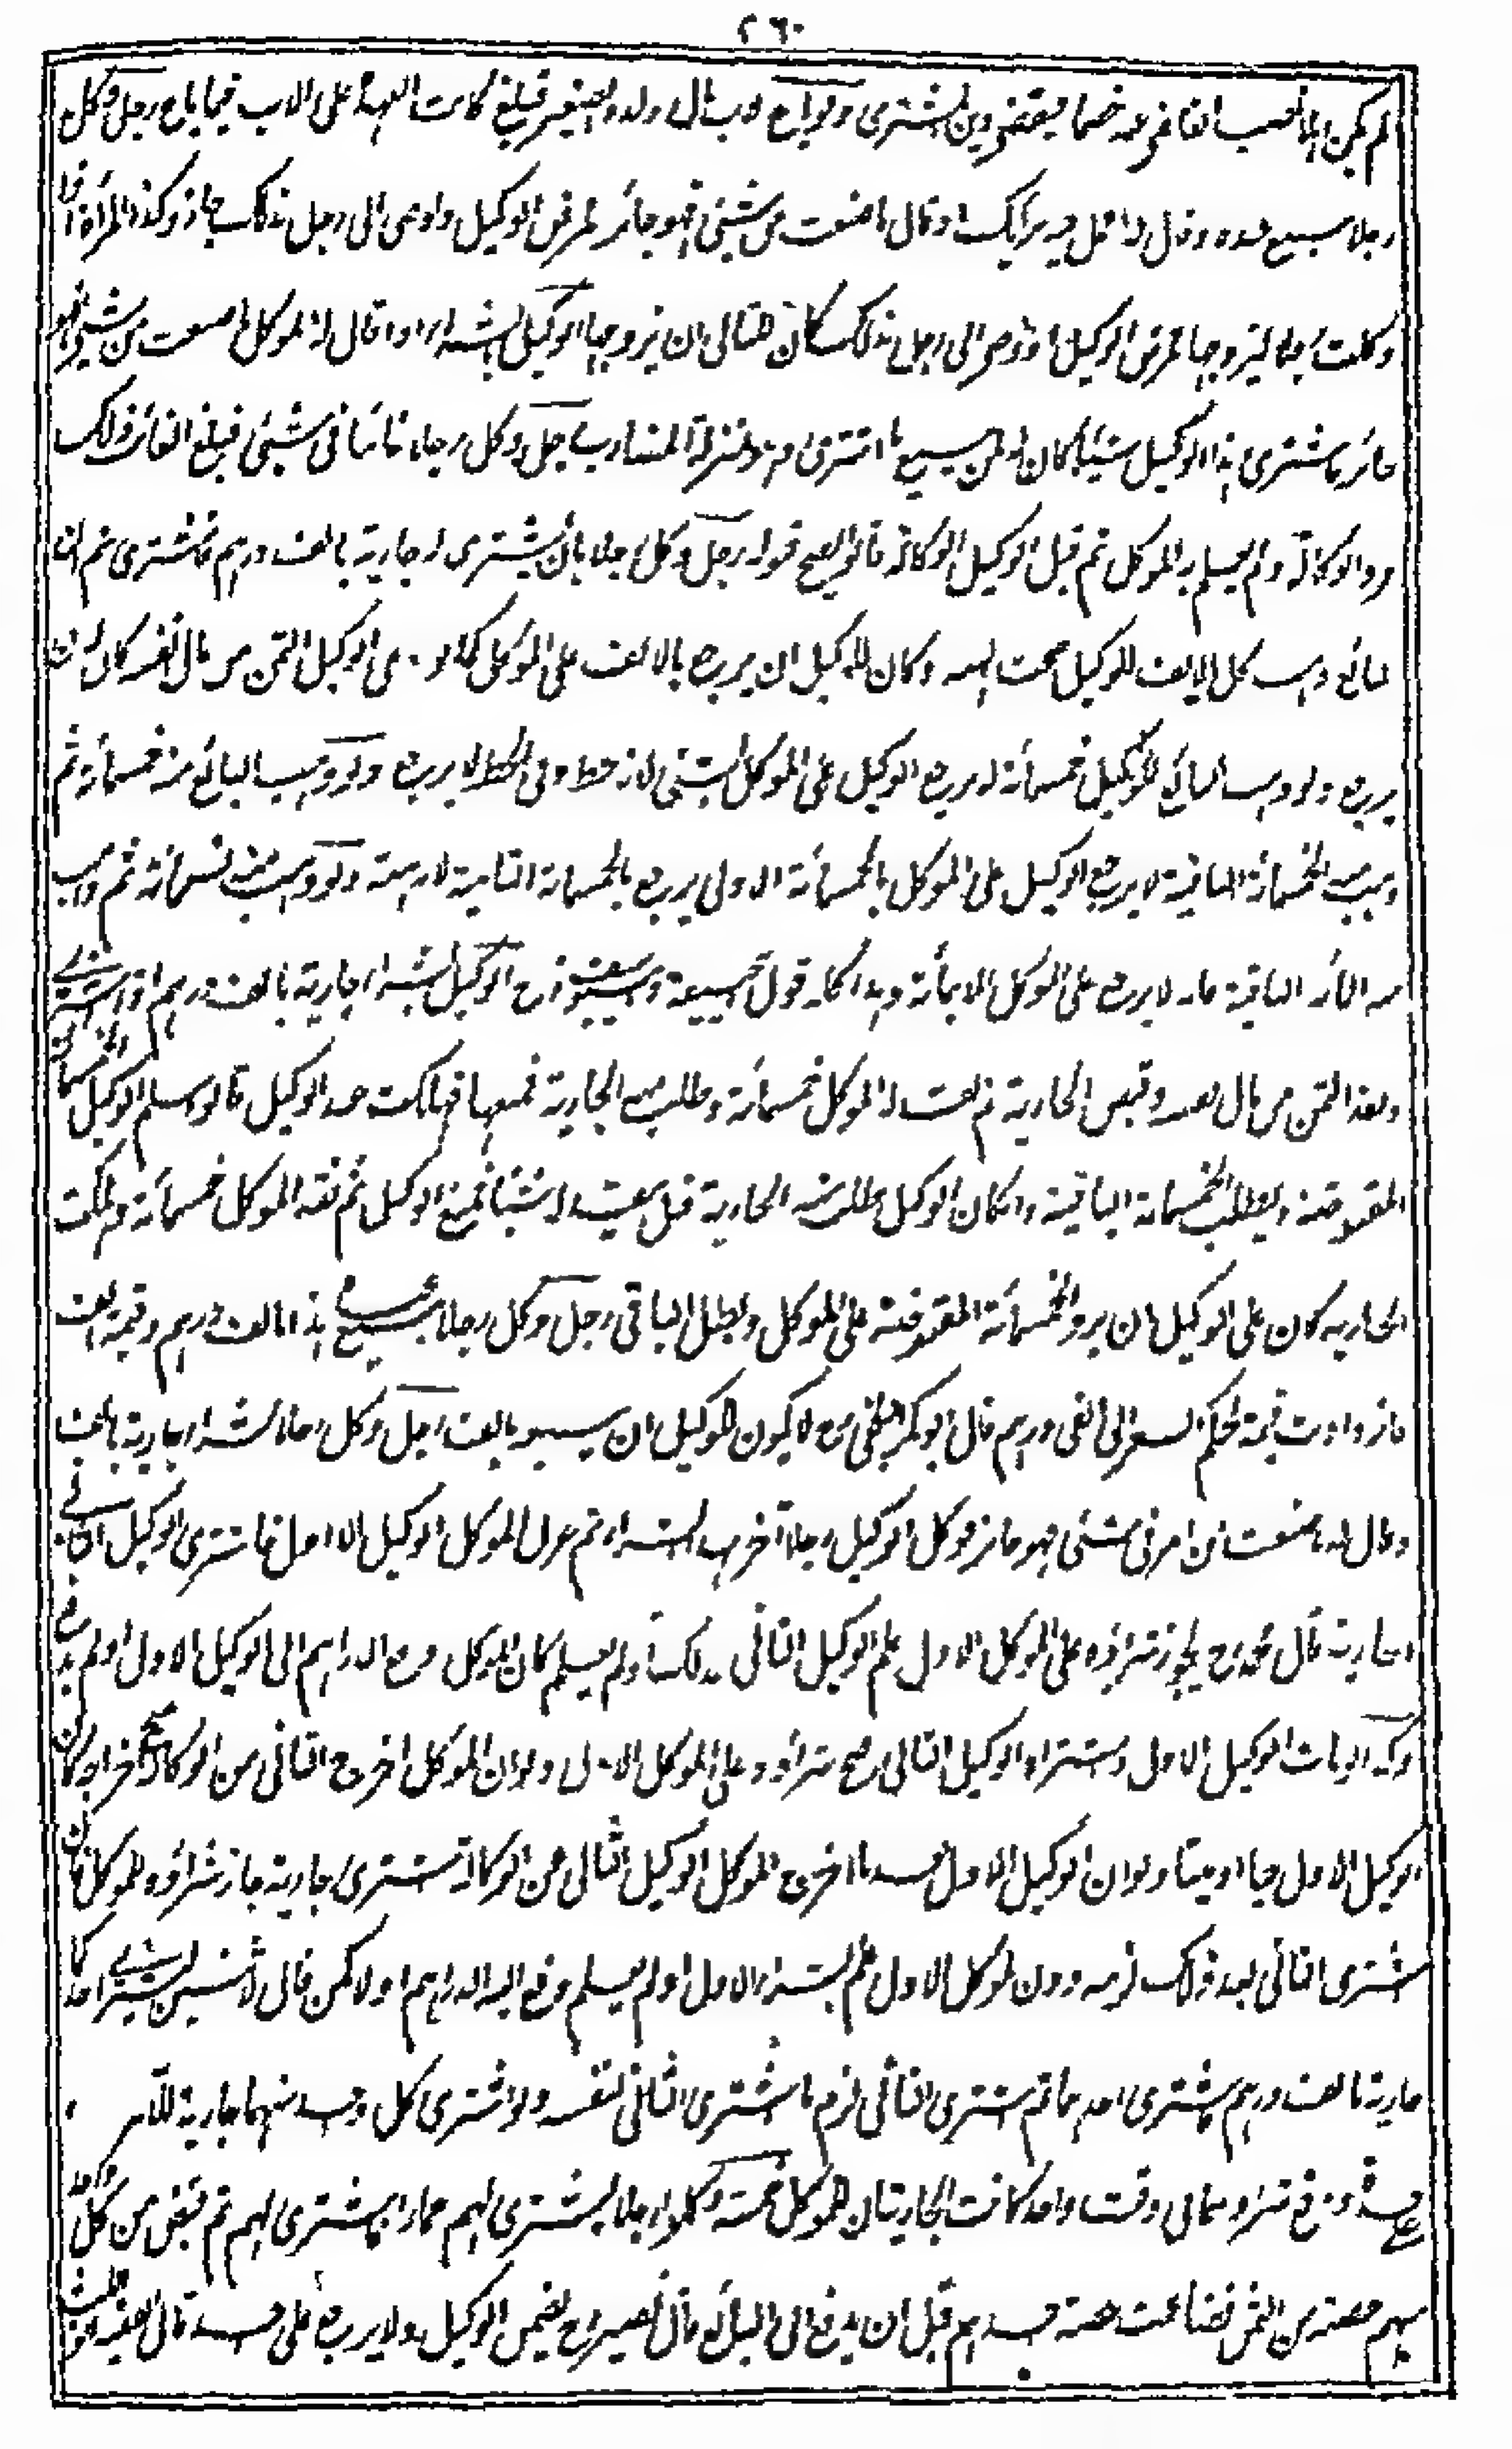 ٢٦٠
لم يكن ان ينصب القاضي عنه خصما فيقضي دين المشتري ولو باع الاب مال ولده الصغير فبلغ كانت العهدة على الاب فيما باع رجل وكل
رجلا ببيع عبده وقال له اعمل فيه برأيك او قال ما صنعت من شيئ فهو جائز لمرض الوكيل واوصى الى رجل بذلك جاز وكذا المرأة اذا
وكلت رجلا ليزوجها لمرض الوكيل واوصى الى رجل بذلك كان للثاني ان يزوجها الوكيل بالشراء اذا قال له الموكل ما صنعت من شيئ فهو
جائز فاشترى هذا الوكيل شيئا كان له ان يبيع ما اشترى وهو بمنزلة المضارب رجل وكل رجلا غائبا في شيئ فبلغ الغائب ذلك
ورد الوكالة ولم يعلم به الموكل ثم قبل الوكيل الوكالة قالوا يصح قبوله رجل وكل رجلا بان يشتري له جارية بالف درهم فاشترى ثم ان
البائع وهب كل الالف للوكيل صحت الهبة وكان للوكيل ان يرجع بالالف على الموكل كما لو ادى الوكيل الثمن من مال نفسه كان له ان
يرجع ولو وهب البائع للوكيل خمسمائة لم يرجع الوكيل على الموكل بشيئ لانه حط وفي الحط لا يرجع ولو وهب البائع منه خمسمائة ثم
وهب منه الخمسمائة الباقية لا يرجع الوكيل على الموكل بالخمسمائة الاولى يرجع بالخمسمائة الثانية لانه هبة ولو وهب منه تسعمائة ثم وهب
منه المائة الباقية فانه لا يرجع على الموكل الا بمائة وهذا كله قول ابي حنيفة وابي يوسف رح الوكيل بشراء جارية بالف درهم اذا اشترى
ونقد الثمن من مال نفسه وقبض الجارية ثم بعث له الموكل خمسمائة وطلب منه الجارية فمنعها فهلكت عند الوكيل قالوا يسلم للوكيل الخمسمائة
المقبوضة ويبطل الخمسمائة الباقية وان كان الوكيل طلب منه الجارية قبل ان يبعث اليه شيئا فمنع الوكيل ثم نقد الموكل خمسمائة وهلكت
الجارية كان على الوكيل ان يرد الخمسمائة المقبوضة على الموكل ويبطل الباقي رجل وكل رجلا ببيع عبده هذا بالف درهم وقيمته الف
فازدادت قيمته بحكم السعر الى الفي درهم قال ابو بكر البلخي رح لا يكون للوكيل ان يبيعه بالف رجل وكل رجلا بشراء جارية بالف
وقال له ما صنعت من امر في شيئ فهو جائز فوكل الوكيل رجلا آخر بهذا الشراء ثم عزل الموكل الوكيل الاول فاشترى الوكيل الثاني
الجارية قال محمد رح يجوز شراؤه على الموكل الاول علم الوكيل الثاني بذلك او لم يعلم كان الموكل دفع الدراهم الى الوكيل الاول او لم يدفع
وكذا لو مات الوكيل الاول واشتراه الوكيل الثاني صح شراؤه على الموكل الاول ولو ان الموكل اخرج الثاني من الوكالة صح اخراجه كان
الوكيل الاول حيا او ميتا ولو ان الوكيل الاول بعد ما اخرج الموكل الوكيل الثاني من الوكالة اشترى جارية جاز شراؤه للموكل فان
اشترى الثاني بعد ذلك لزمه دون الموكل الاول علم بشراء الاول او لم يعلم دفع اليه الدراهم او لا كمن قال لاثنين ليشتري احدكما
جارية بالف درهم فاشترى احدهما ثم اشترى الثاني لزم ما اشترى الثاني لنفسه ولو اشترى كل واحد منهما جارية للآمر
على حدة ووقع شراؤهما في وقت واحد كانت الجاريتان للموكل خمسة وكلوا رجلا ليشتري لهم حمارا فاشترى لهم ثم قبض من كل واحد
منهم حصته من الثمن فضاعت حصة احدهم قبل ان يدفع الى البائع قال نصير رح يضمن الوكيل ولا يرجع على احد قال الفقيه ابو الليث